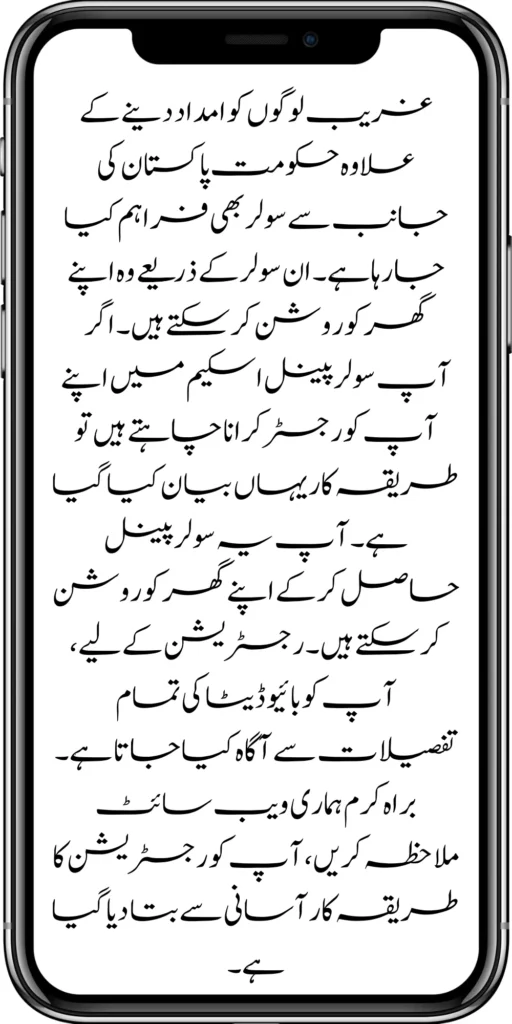 غریب لوگوں کو امداد دینے کے
علاوہ حکومت پاکستان کی
جانب سے سولر بھی فراہم کیا
جارہا ہے۔ ان سولر کے ذریعے وہ اپنے
گھر کو روشن کر سکتے ہیں۔ اگر
آپ سولر پینل اسکیم میں اپنے
آپ کو رجسٹر کرانا چاہتے ہیں تو
طریقہ کار یہاں بیان کیا گیا
ہے۔ آپ یہ سولر پینل
حاصل کر کے اپنے گھر کو روشن
کر سکتے ہیں۔ رجسٹریشن کے لیے،
آپ کو بائیو ڈیٹا کی تمام
تفصیلات سے آگاہ کیا جاتا ہے۔
براہ کرم ہماری ویب سائٹ
ملاحظہ کریں، آپ کو رجسٹریشن کا
طریقہ کار آسانی سے بتا دیا گیا
ہے۔